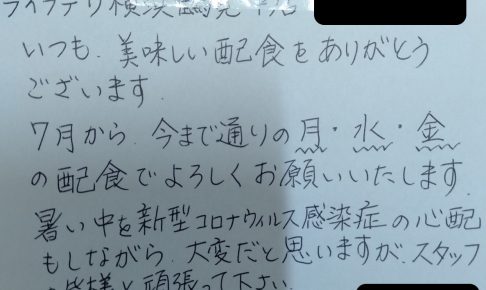 ライフデリ横浜鶴見
いつも、美味しい配食をありがとう
ございます.
7月から、今まで通りの月・水・金
の配食でよろしくお願いいたします
暑い中を新型コロナウィルス感染症の心配
もしながら、大変だと思いますが、スタッフ
皆様と頑張って下さい.